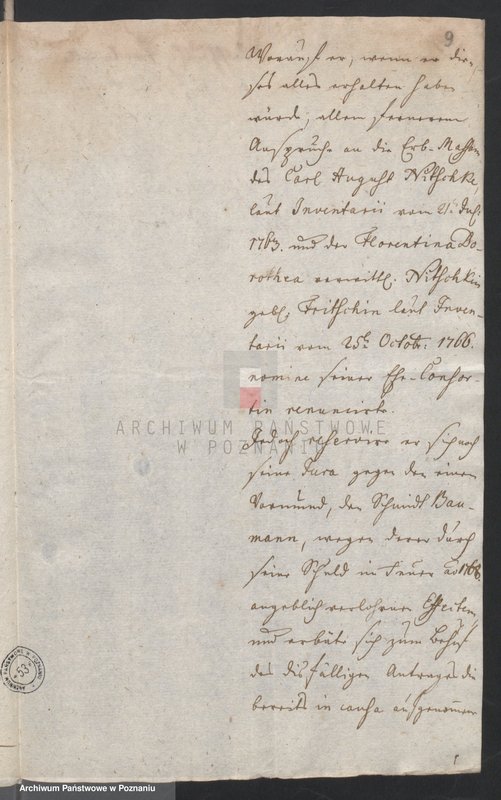 9
Worauf er, wenn er die-
ses alles erhalten haben
würde, allem ferneren
Ansprüche an die Erb-Masse
des Carl August Nitschke,
laut Inventarii vom
1763. und der Florentina Do-
rothea verwittb. Nitschkin
gebl. Fritschin laut Inven-
tarii vom 25t. Octobr: 1766.
nomine seiner Ehe-Consor-
tin renuncirte.
Jedoch reservire er sich noch
seine Jura gegen den einen
Vormund, den Schmidt Bau-
mann, wegen derer durch
seine Schuld in Feuer ao 1768.
angeblich verlohrnen Effecten,
und erbäte sich zum Behuf
des disfälligen Antrages die
bereits in causa aufgenommen
ARCHIWUM PAŃSTWOWE
W POZNANIU
ARCHIWUM PAŃSTWOWE W POZNANIU
53
Archiwum Państwowe w Poznaniu